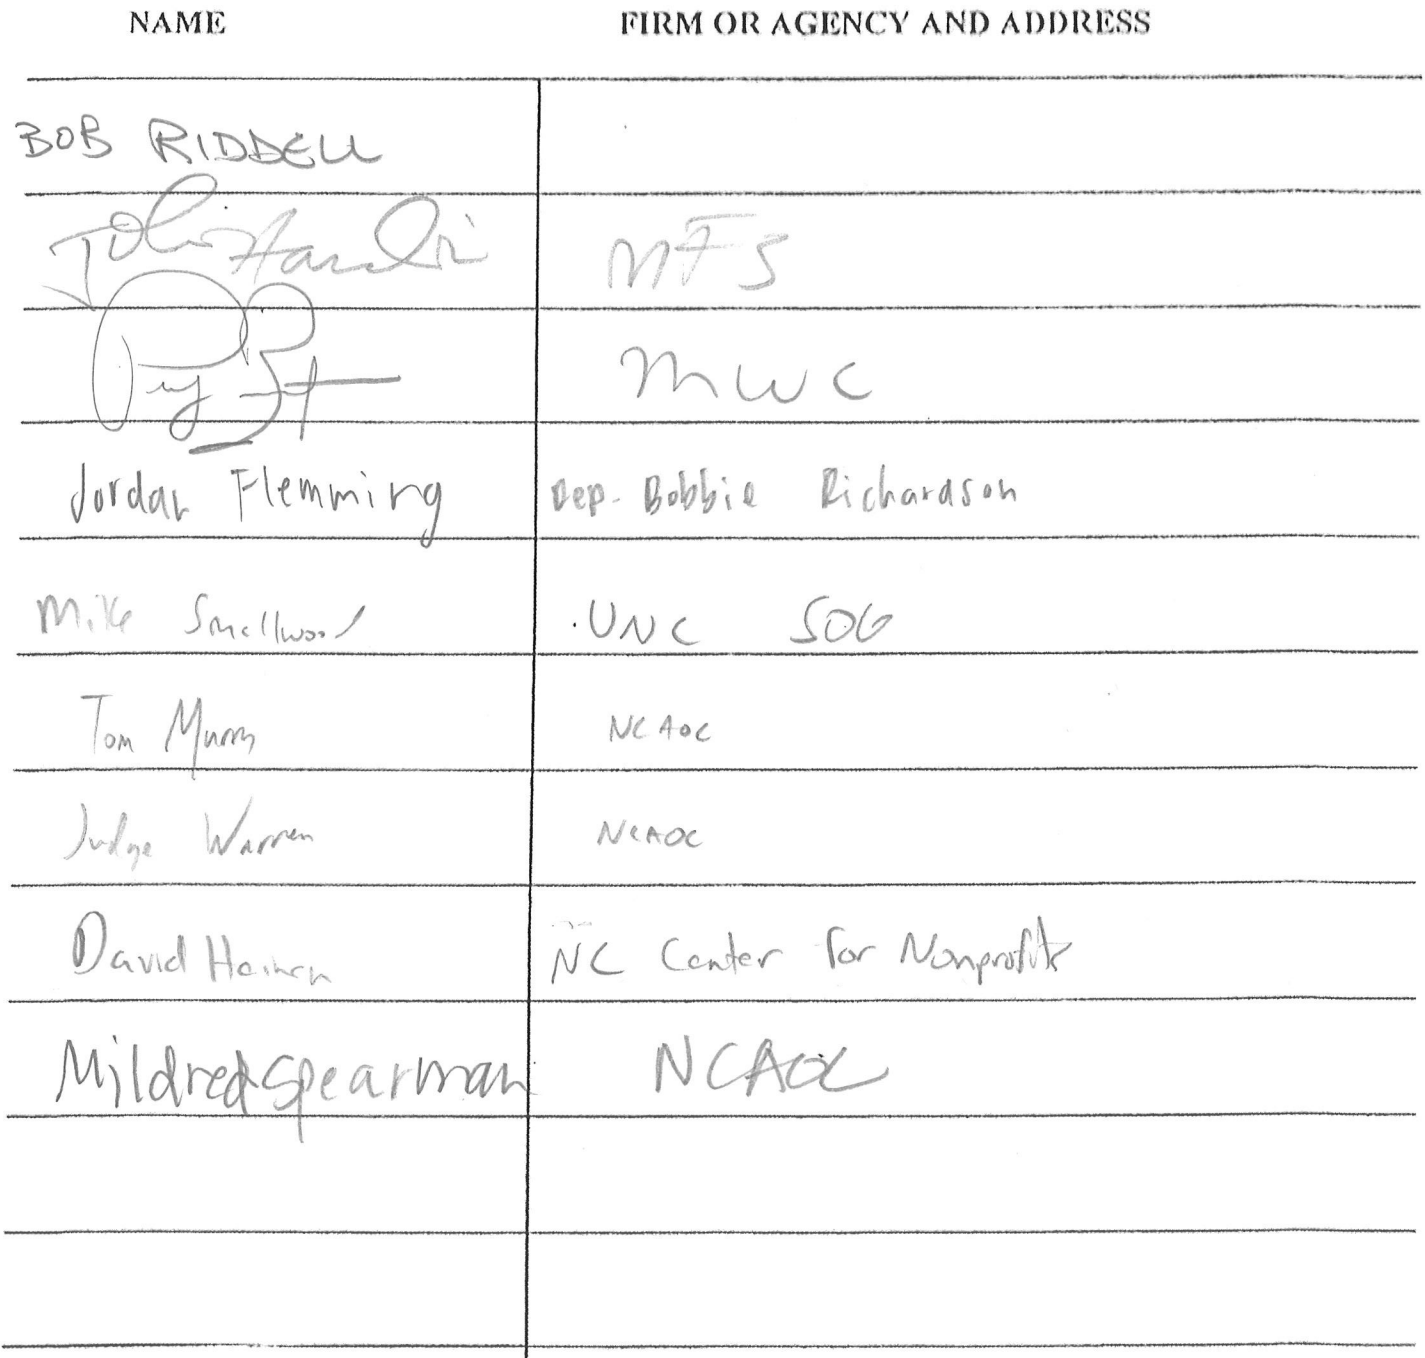 NAME FIRM OR AGENCY AND ADDRESS
BOB RIDDELL
John Hardin MFS
MWC
Jordan Flemming Rep. Bobbie Richardson
Mike Smallwood UNC SOG
Tom Murry NCAOC
Judge Warren NCAOC
David Heinen NC Center for Nonprofits
Mildred Spearman NCAOC